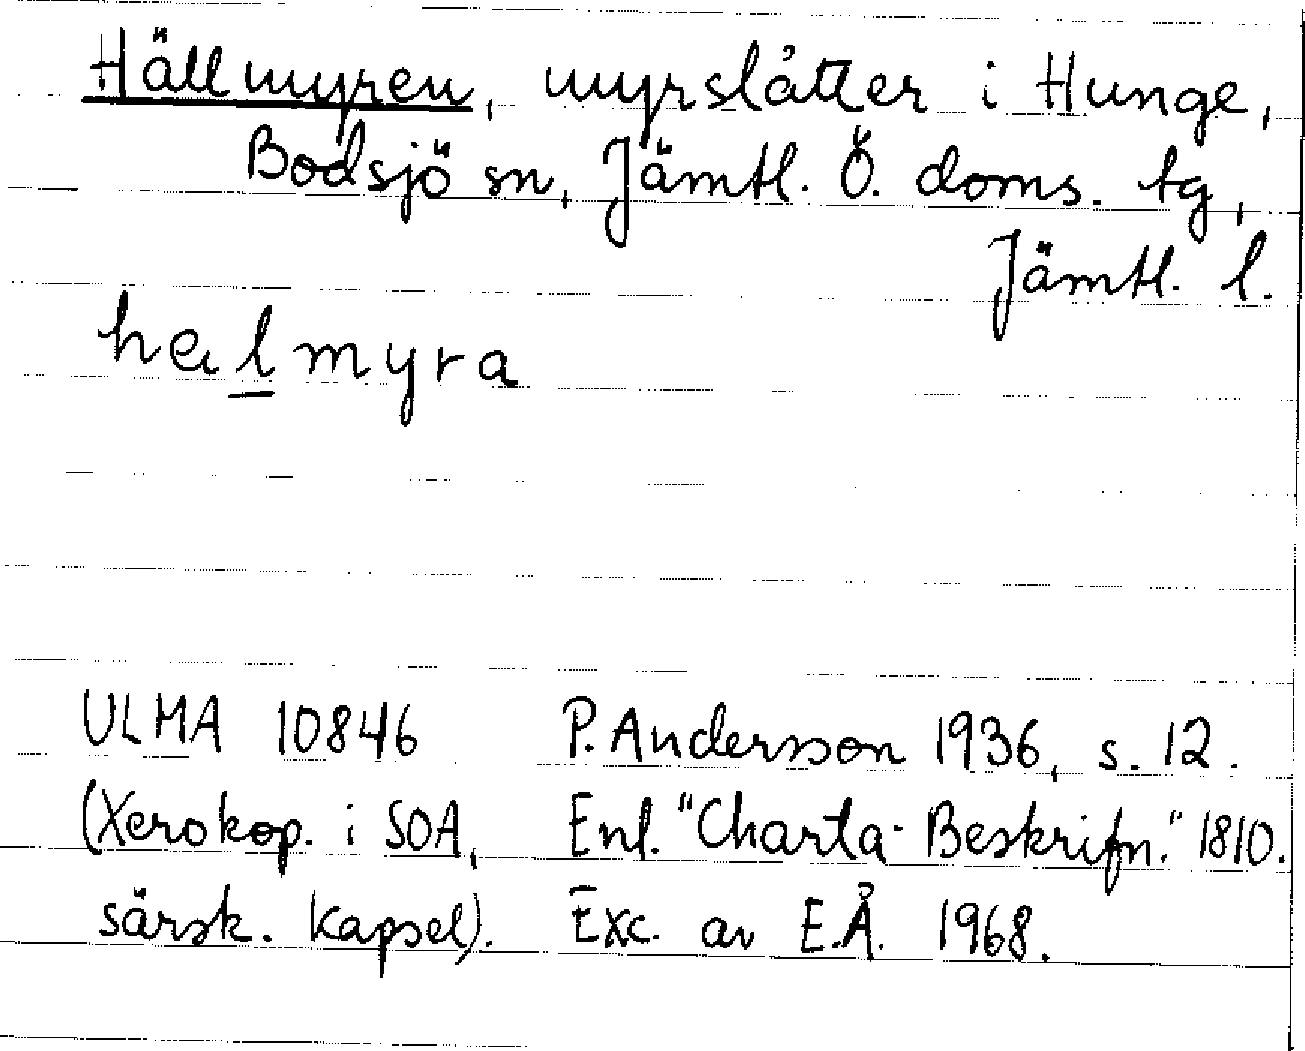 Hällmyren, myrslåtter i Hunge,
Bodsjö sn, Jämtl. Ö. doms. tg,
Jämtl. l.
hælmyra
ULMA 10846 P. Andersson 1936, s. 12.
(Xerokop. i SOA, Enl. "Charta-Beskrifn." 1810.
särsk. kapsel). Exc. av E.Å. 1968.